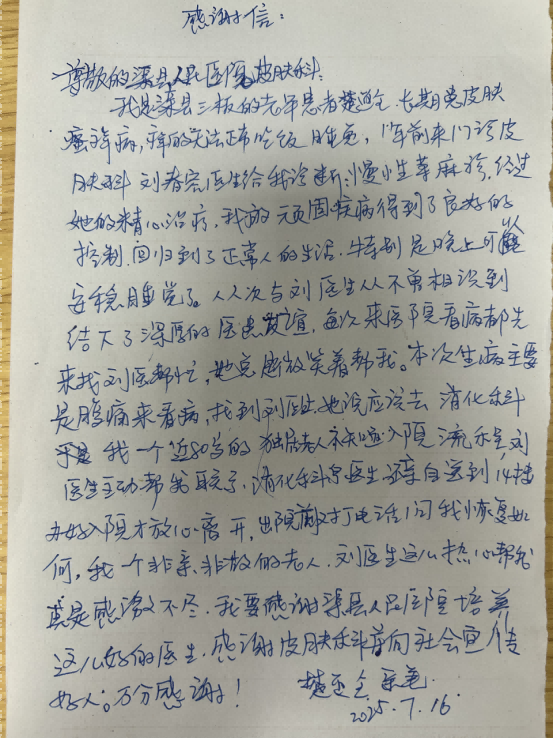 感谢信：
尊敬的渠县人民医院皮肤科：
我是渠县三板的老年患者楚道全，长期患皮肤
瘙痒病，痒的无法正常吃饭睡觉，1年前来门诊皮
肤科刘春容医生给我诊断：慢性荨麻疹，经过
她的精心治疗，我的顽固疾病得到了良好的
控制，回归到了正常人的生活，特别是晚上可以能
安稳睡觉了。从次与刘医生从不曾相识到
结下了深厚的医患友谊，每次来医院看病都先
来找刘医帮忙，她总是微笑着帮我。本次生病主要
是胸痛来看病，找到刘医生她说应该去消化乐科
于是我一个近80岁的独居老人不知道入院流乐是刘
医生主动帮我联系，消化乐科 医生 亲自送到14楼
办好入院才放心离开，出院前 打电话问我恢复如
何，我一个非亲非故的老人，刘医生这么热心帮我
真是感激不尽，我要感谢渠县人民医院培养
这么好的医生，感谢皮肤乐科 向社会宣传
好人。万分感谢！
楚 全
2025.7.16.